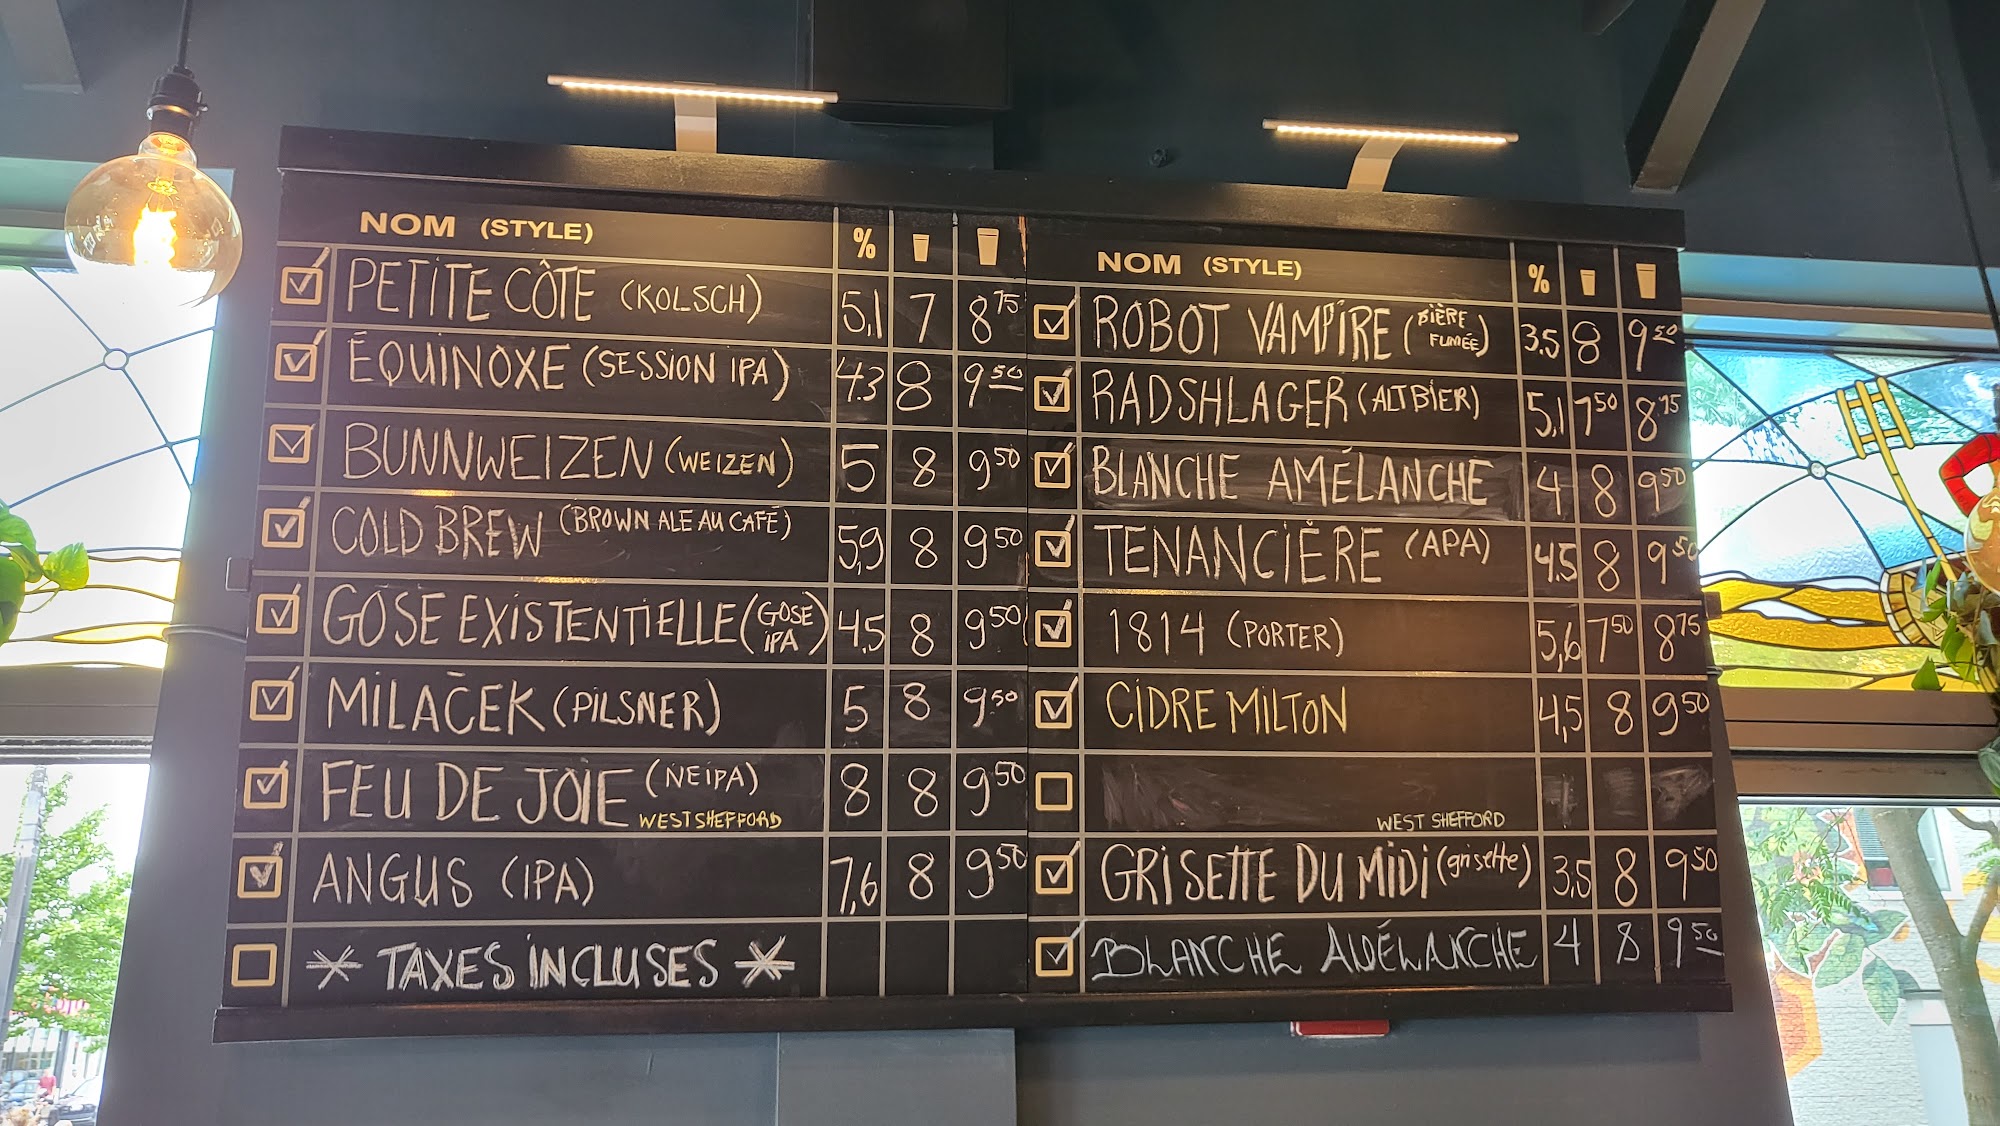 NOM (STYLE) %
PETITE CÔTE (KOLSCH) 5,1 7 8 75
ÉQUINOXE (SESSION IPA) 4.3 8 9 50
BUNNWEIZEN (WEIZEN) 5 8 9 50
COLD BREW (BROWN ALE AU CAFÉ) 5,9 8 9 50
GOSE EXISTENTIELLE (GOSE IPA) 4,5 8 9 50
MILAČEK (PILSNER) 5 8 9.50
FEU DE JOIE (NEIPA) 8 8 9 50
WEST SHEFFORD
ANGUS (IPA) 7,6 8 9 50
* TAXES INCLUSES *
NOM (STYLE) %
ROBOT VAMPIRE (BIÈRE FUMÉE) 3.5 8 9 50
RADSHLAGER (ALTBIER) 5,1 7 50 8 75
BLANCHE AMÉLANCHE 4 8 9 50
TENANCIÈRE (APA) 4.5 8 9 50
1814 (PORTER) 5,6 7 50 8 75
CIDRE MILTON 4,5 8 9 50
WEST SHEFFORD
GRISETTE DU MIDI (grisette) 3,5 8 9 50
BLANCHE AMÉLANCHE 4 8 9 50